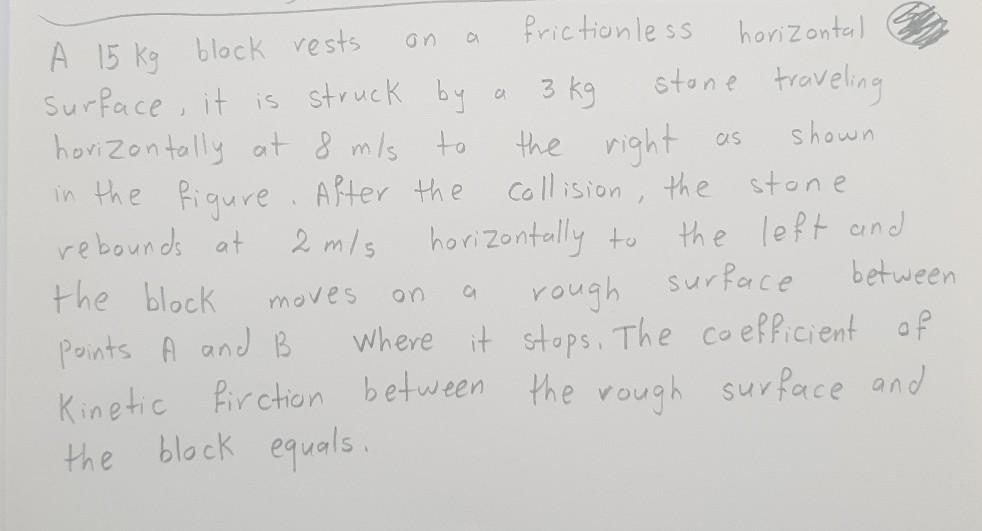 A 15 kg block rests on a frictionless horizontal
surface, it is struck by a 3 kg stone traveling
horizontally at 8 m/s to the right as shown
in the figure. After the collision, the stone
rebounds at 2 m/s horizontally to the left and
the block moves on a rough surface between
points A and B where it stops. The coefficient of
Kinetic firction between the rough surface and
the block equals.